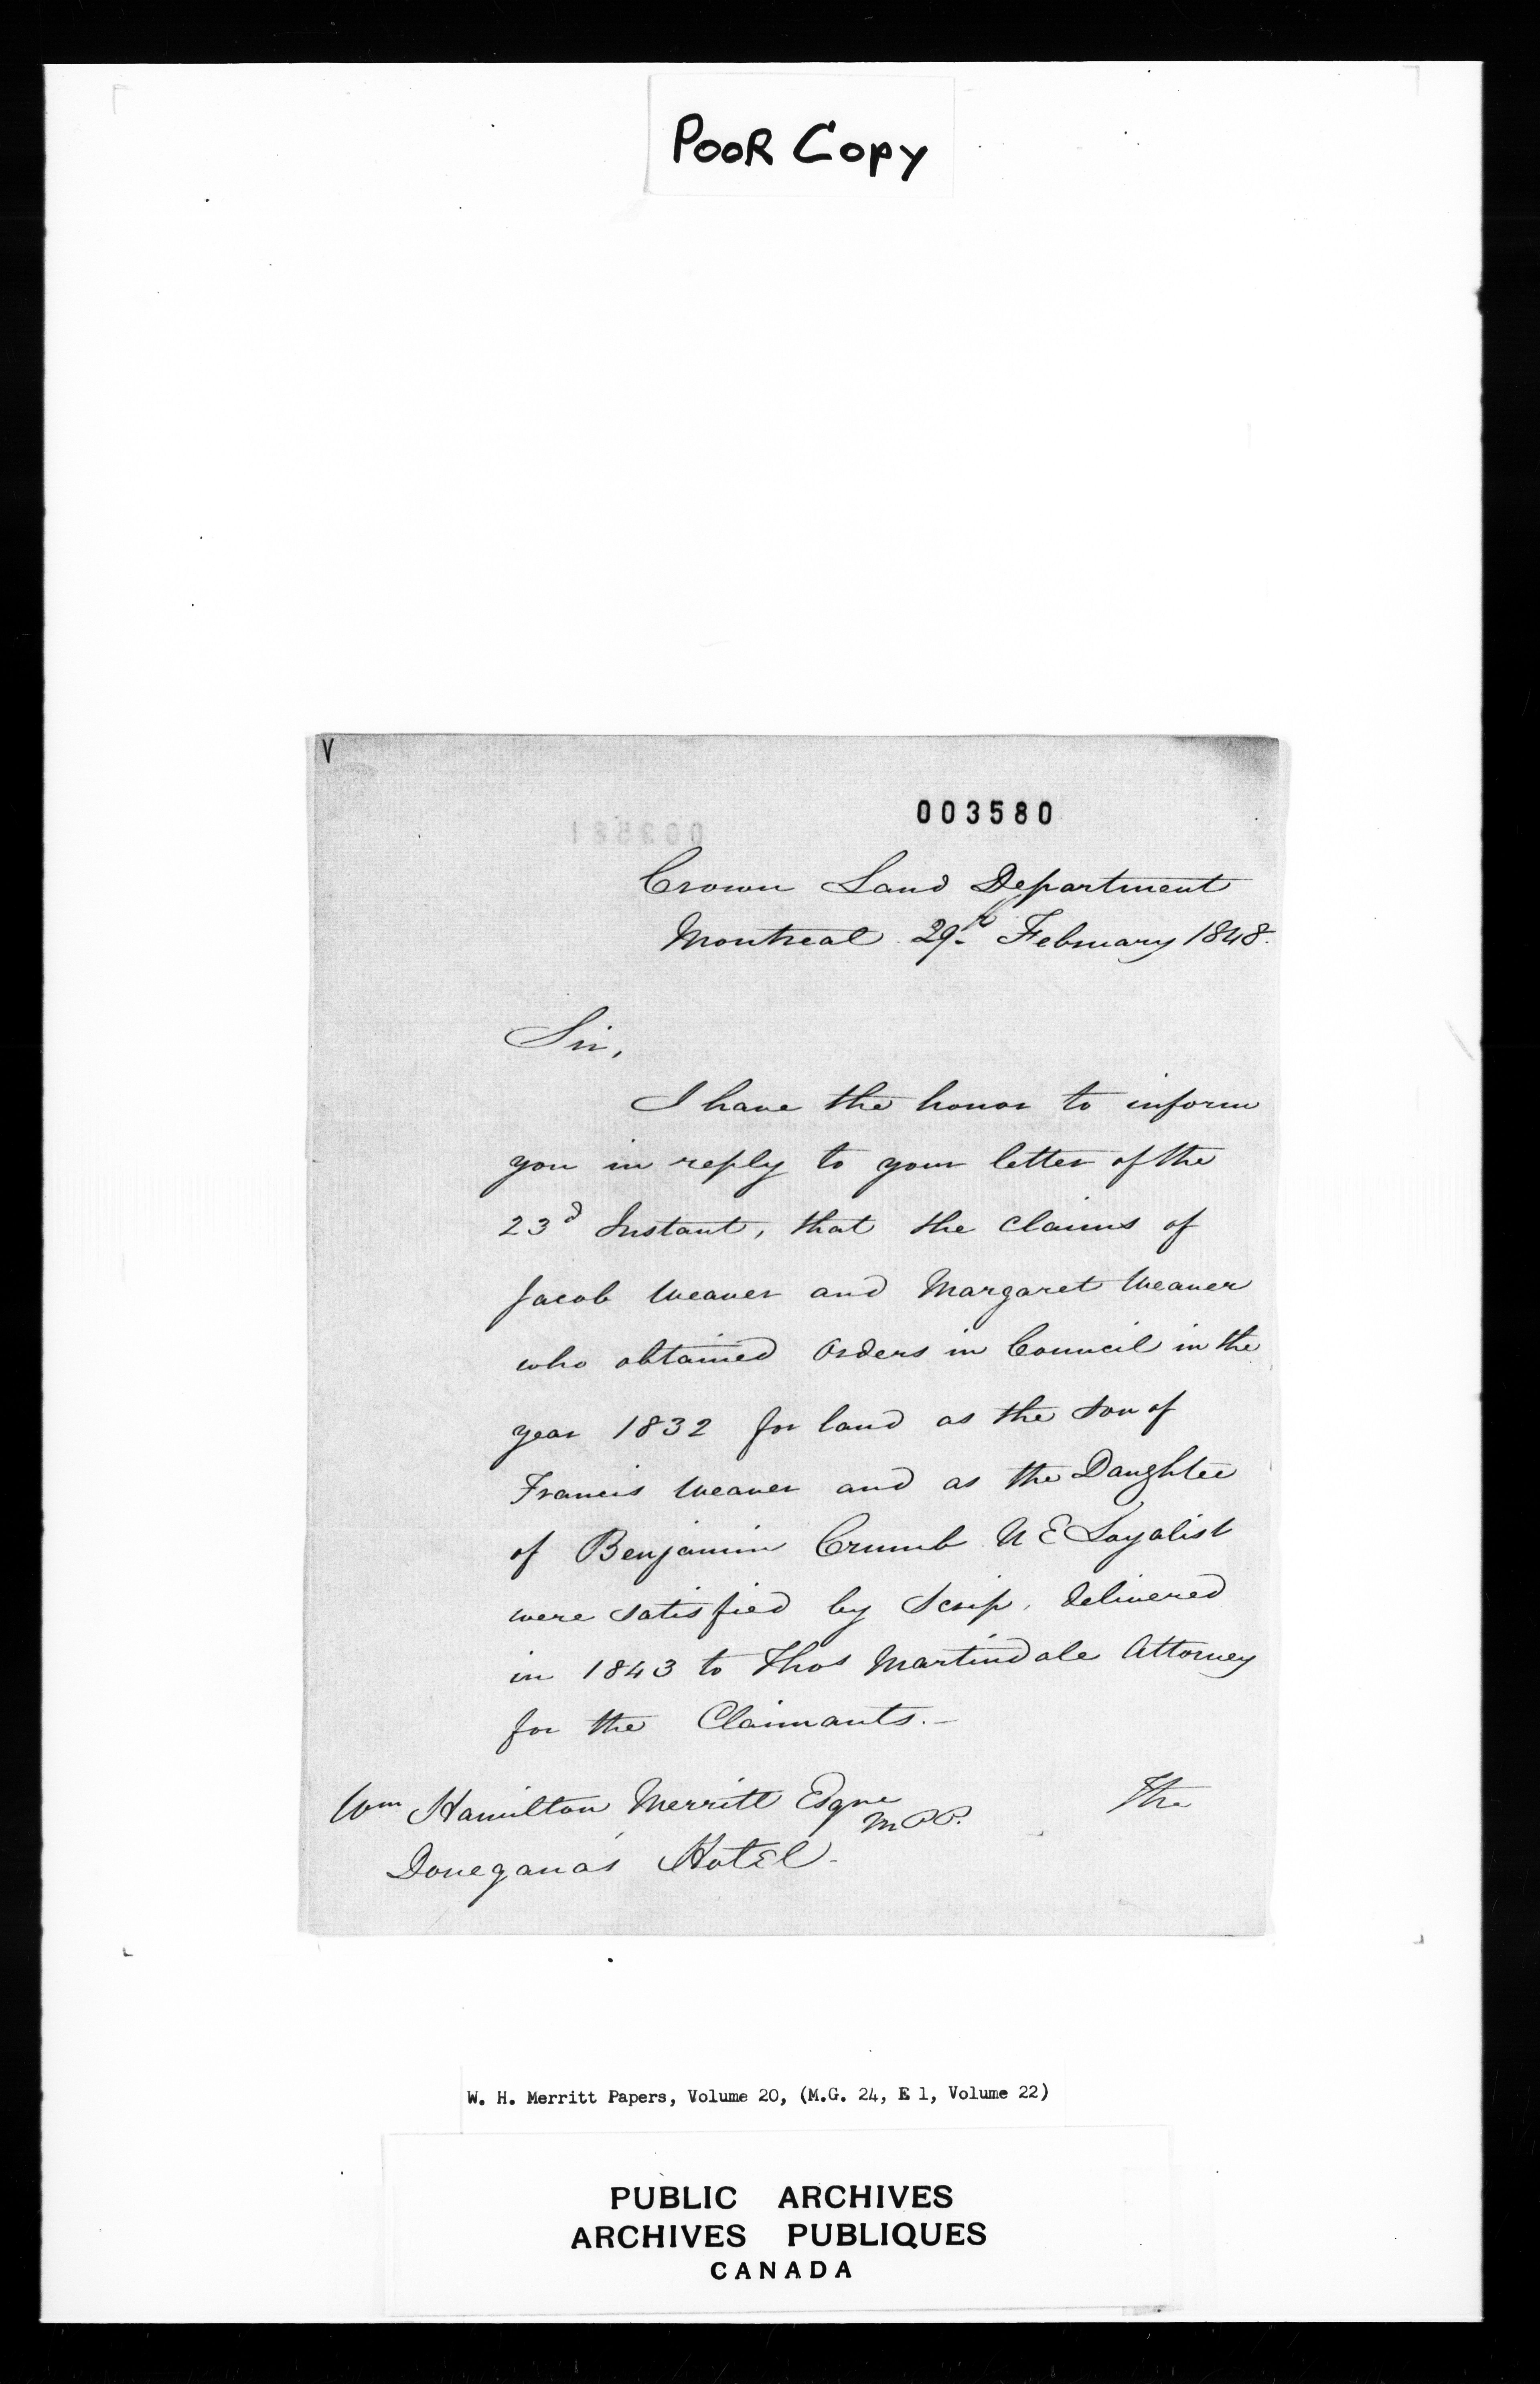 POOR COPY
V
003580
Crown Land Department
Montreal 29th February 1848.
Sir,
I have the honor to inform
you in reply to your letter of the
23d Instant, that the claims of
Jacob Weaver and Margaret Weaver
who obtained Orders in Council in the
year 1832 for land as the son of
Francis Weaver and as the Daughter
of Benjamin Crumb U E Loyalist
were satisfied by Scrip, delivered
in 1843 to Thos Martindale Attorney
for the Claimants.-
The
Wm Hamilton Merritt Esqre
M.P.P.
Donegana's Hotel.
W. H. Merritt Papers, Volume 20, (M.G. 24, E 1, Volume 22)
PUBLIC ARCHIVES
ARCHIVES PUBLIQUES
CANADA